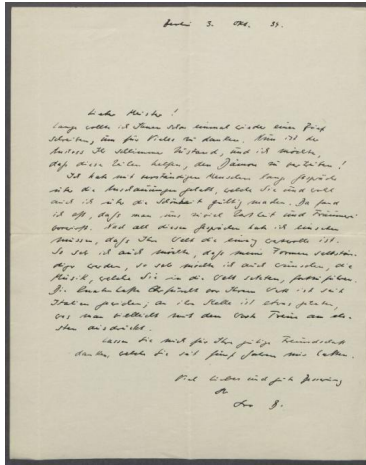 Berlin 3. Okt. 34.
Lieber Meister!
Lange wollte ich Ihnen schon einmal wieder einen Brief
schreiben, um für Vieles zu danken. Nun ist der
Anlass Ihr schlimmer Zustand, und ich möchte,
daß diese Zeilen helfen, den Dämon zu
Ich habe mit verständigen Menschen lange Gespräche
über die Anschauungen gehabt, welche Sie und wohl
auch ich über die Schönheit gültig machen. Da fand
ich oft, daß man uns zuviel Zartheit und Träumerei
vorwirft. Nach all diesen Gesprächen habe ich einsehen
müssen, daß Ihre Welt die einzig wertvolle ist.
So sehr ich auch möchte, daß meine Formen selbstän-
diger werden, so sehr möchte ich auch wünschen, die
Musik, welche Sie in die Welt
Die Ehrfurcht vor Ihrem Werk ist seit
Italien an ihre Stelle ist etwas
was man vielleicht mit dem Wort Treue am eh-
sten ausdrückt.
Lassen Sie mich für Ihre gütige Freundschaft
danken, welche Sie seit fünf Jahren mir
Viel Liebes und gute